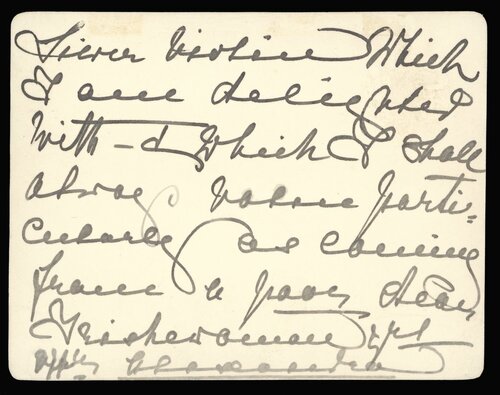 Silver Violin Which
I am delighted
With – & Which I shall
always value parti-
cularly as coming
from a poor dear
Irishwoman
Alexandra